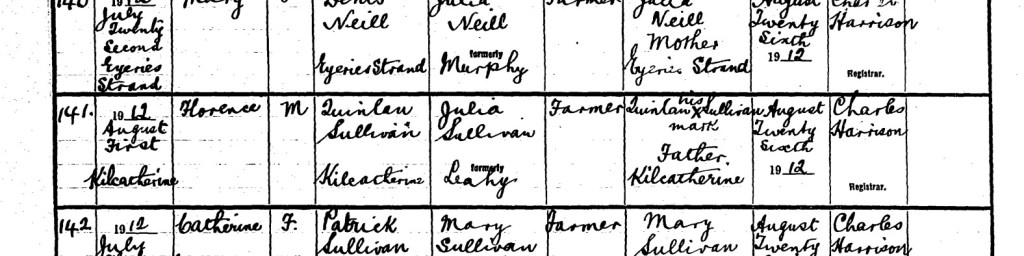 140 1912 Mary Denis Julia Farmer Julia August Charles
July Neill Neill Neill Twenty Harrison
Twenty Mother Sixth
Second formerly 1912
Eyeries Eyeries Strand Murphy Eyeries Strand Registrar.
Strand
141. 1912 Florence M Quinlan Julia Farmer Quinlan his X Sullivan August Charles
August Sullivan Sullivan mark Twenty Harrison
First Father. Sixth
formerly 1912
Kilcatherine Kilcatherine Leahy Kilcatherine Registrar.
142 1912 Catherine F. Patrick Mary Farmer Mary August Charles
July Sullivan Sullivan Sullivan Twenty Harrison